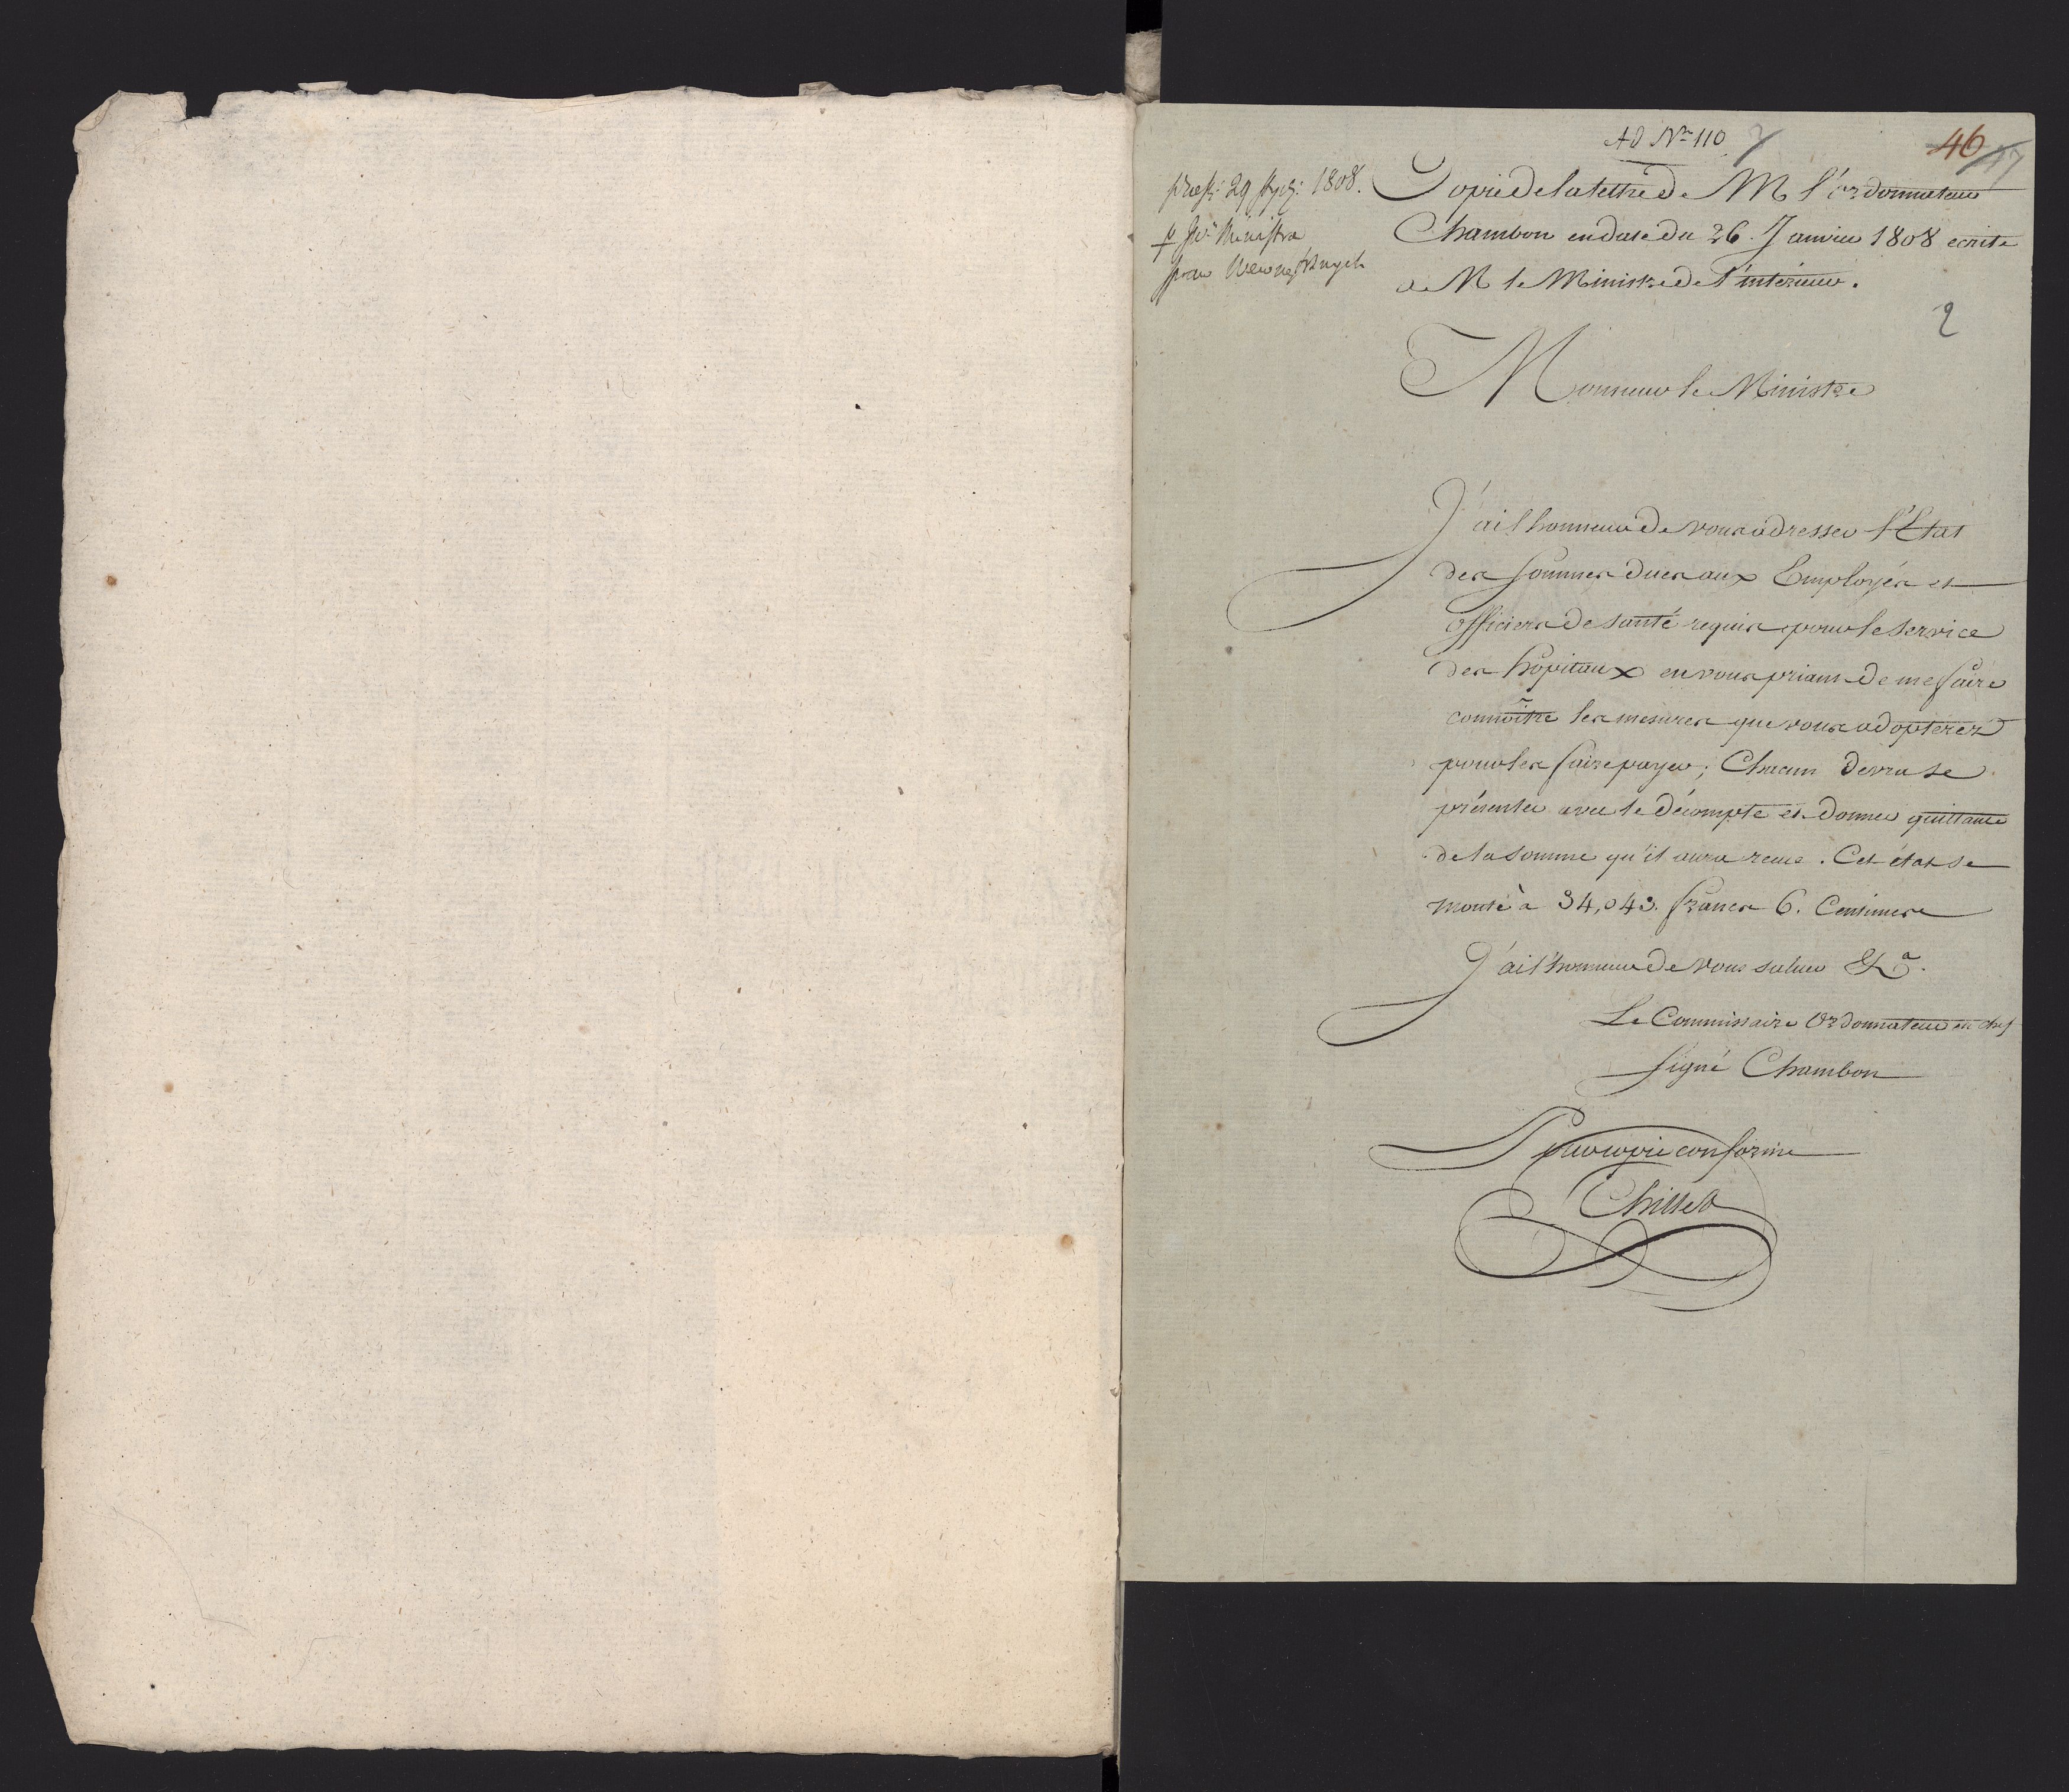 Ad Nro 110
46
præs: 29 stycz: 1808.
Copie de la lettre de M l'ordonnateur
Chambon en date du 26. Janvier 1808 ecrite
a M le Ministre de l'intérieur.
p JW. Ministra
spraw Wewnętrznych
2
Monsieur le Ministre
J'ai l'honneur de vous adresser l'Etat
des sommes dues aux Employés et
officiers de santé requis pour le service
des hôpitaux en vous priant de me faire
connoître les mesures que vous adopterez
pour les faire payer; Chacun devra se
présenter avec le décompte et donner quittance
de la somme qu'il aura reçue. Cet état se
monte à 34,043. francs 6. Centimes
J'ai l'honneur de vous saluer &a.
Le Commissaire Ordonnateur en chef
signé Chambon
Pour copie conforme